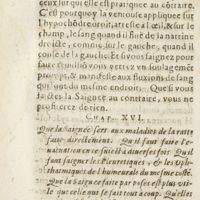 ceux sur qui elle est pratiquee au côtraire.
C'est pourquoy la ventouse appliquee sur
l'hypochôdre ou reiar, arreste a l'œil, & sur le
champ, le sang quand il flue de la natrine
droicte, comme sur le gauche, quand il
coule de la gauche. Et si vous saignez pour
faire euulsion, vous verrez vn soulagemēt
prompt, & manifeste aux fluxions de sang
qui sont du mesme endroit. Que si vous
faictes la Saignee au contraire, vous ne
profiterez de rien.
CHAP. XVI.
Que la Saignée sert aux maladies de la ratte
faite directement. Il faut faire l'e-
uacuation en ce suiect à diuerses fois. Qu'il
faut saigner les Pleuretiques, & les Oph-
thalmiques de l'humerale du mesme costé.
Que la Saignee faite par oses est plus vti-
le que celle qui se fait tout à coup. Quelles